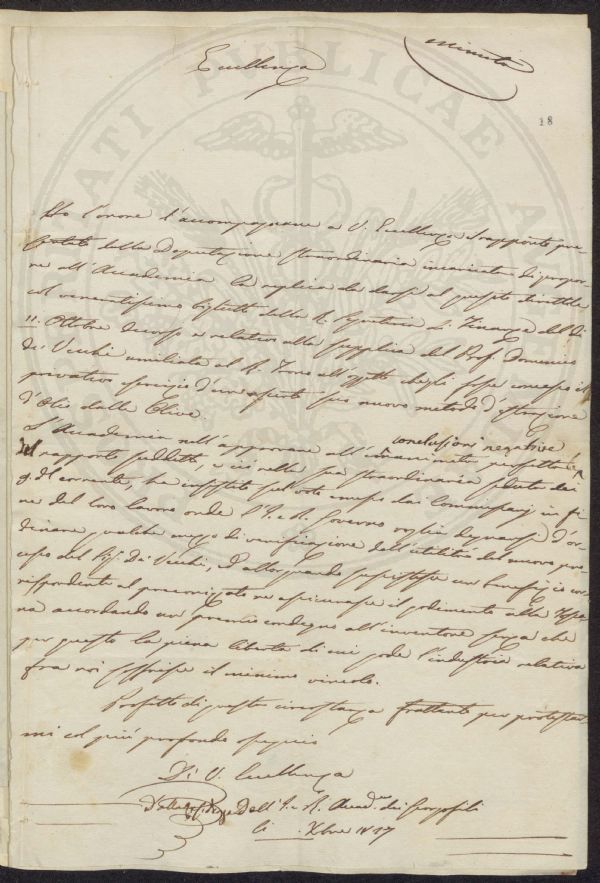 Minuta
Eccellenza
18
Ho l'onore d'accompagnare a V. Eccellenza il rapporto pre-
sentato dalla Deputazione straordinaria incaricata di propor-
re all'Accademia la replica da darsi al quesito direttole
col veneratissimo della R. Segreteria di Finanze del dì
11. Ottobre decorso e relativo alla supplica del Prof. Domenico
De' Vecchi umiliata al R. Trono all'oggetto che gli fosse concesso il
privativo esercizio d'un suo nuovo metodo d'estrazione
d'Olio dalle Olive.
L'Accademia nell'approvare all'unanimità perfetta le conclusioni negative
del rapporto suddetto, e ciò nella sua straordinaria seduta dei
9. del corrente, ha sul voto emesso dai Commissarj in fi-
ne del loro lavoro onde l'I. e R. Governo voglia degnarsi d'or-
dinare qualche mezzo di verificazione dell'utilità del nuovo pro-
cesso del De' Vecchi, e allorquando sussistesse un benefizio cor-
rispondente al preconizzato ne assicurasse il godimento alla Tosca-
na accordando un premio condegno all'inventore senza che
per questo la piena libertà di cui gode l'industria relativa
fra noi soffrisse il minimo vincolo.
Profitto di questa circostanza frattanto per protestar-
mi col più profondo ossequio
Di V. Eccellenza
Dell'I. e R. Accad. dei Georgofili
li Xbre